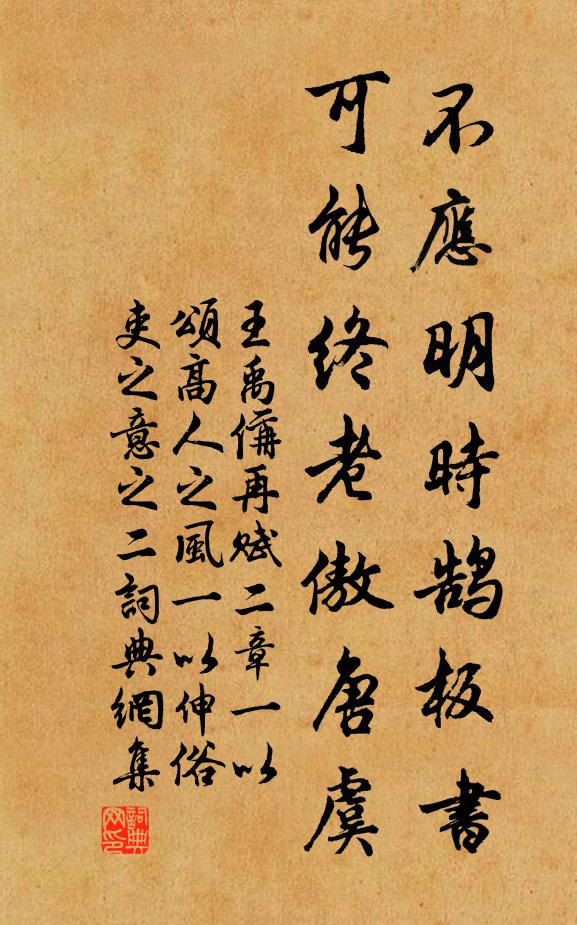 不應明時鹄板書
可能終老傲唐虞
王禹偁再賦二章一以
頌高人之風一以伸俗
吏之意之二詞典網集
詞典
网印